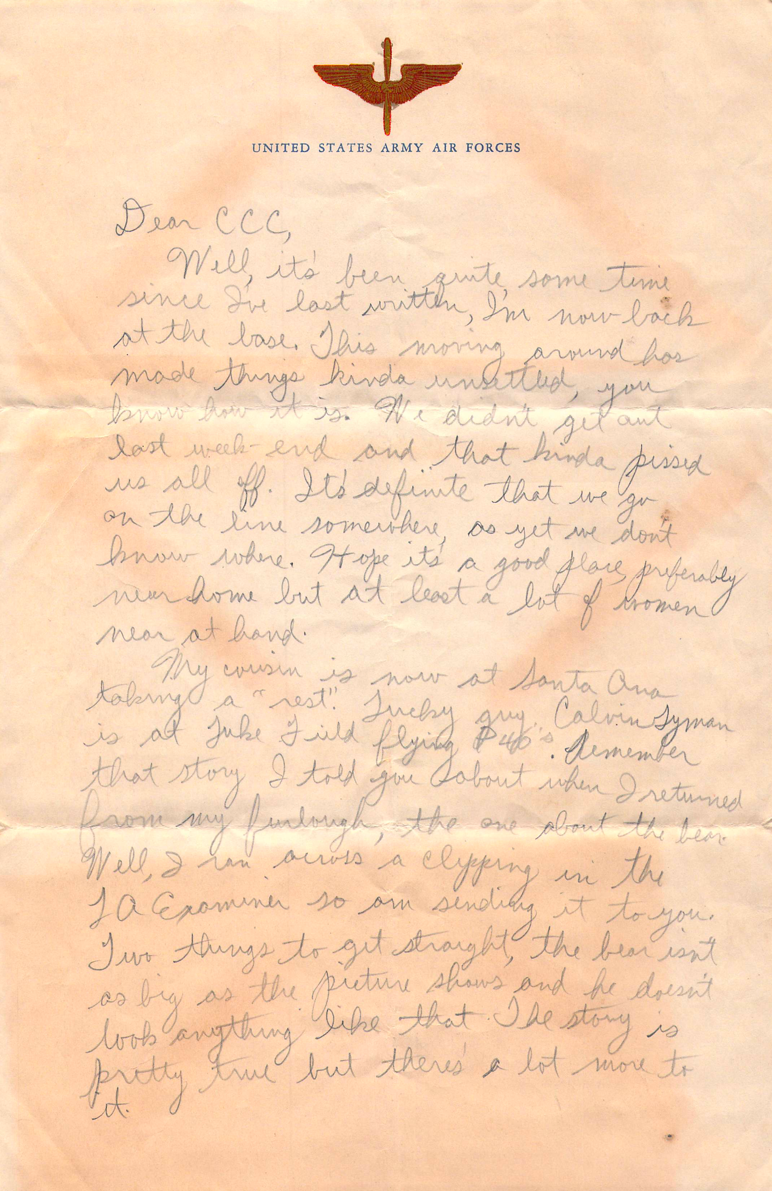 UNITED STATES ARMY AIR FORCES
Dear CCC,
Well, it's been quite some time
since I've last written, I'm now back
at the base. This moving around has
made things kinda unsettled, you
know how it is. We didn't get out
last week-end and that kinda pissed
us all off. It's definite that we go
on the line somewhere, as yet we don't
know where. Hope it's a good place, preferably
near home but at least a lot of women
near at hand.
My cousin is now at Santa Ana
taking a "rest". Lucky guy. Calvin Lyman
is at Luke Field flying P40's. Remember
that story I told you about when I returned
from my furlough, the one about the bear.
Well, I ran across a clipping in the
LA Examiner so am sending it to you.
Two things to get straight, the bear isn't
as big as the picture shows and he doesn't
look anything like that. The story is
pretty true but there's a lot more to
it.